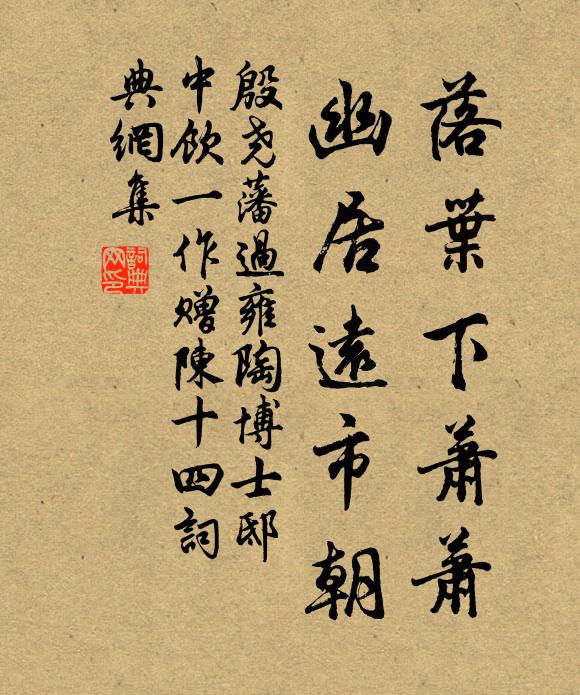 落葉下蕭蕭
幽居遠市朝
殷尧藩過雍陶博士邸
中飲一作赠陳十四詞
典網集
詞典網印